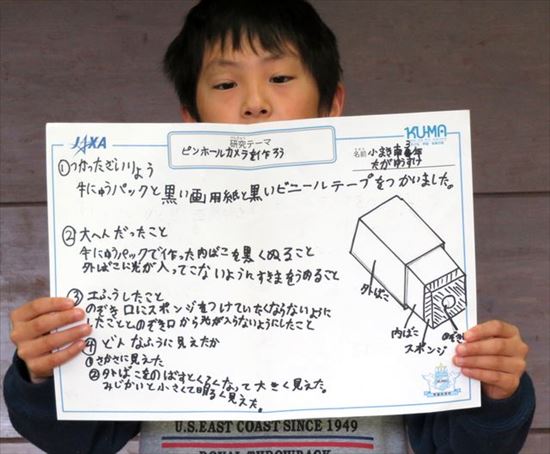 JAXA
けんきゅう
研究テーマ
ピンホールカメラを作ろう
KU-MA
名前 小まき南 3年
たがゆうすけ
①つかったざいりょう
牛にゅうパックと黒い画用紙と黒いビニールテープをつかいました。
②大へんだったこと
牛にゅうパックで作った内ばこを黒くぬること
外ばこに光が入ってこないようにすきまをうめること
③工ふうしたこと
のぞき口にスポンジをつけていたくならないよに
したこととのぞき口から光が入らないようにしたこと
④どんなふうに見えたか
①さかさに見えた
②外ばこをのばすとくらくなって大きく見えた。
みじかいと小さくて明るく見えた。
外ばこ
内ばこ
スポンジ
のぞき
U.S. EAST COAST SINCE 1949
ROYAL THROWBACK